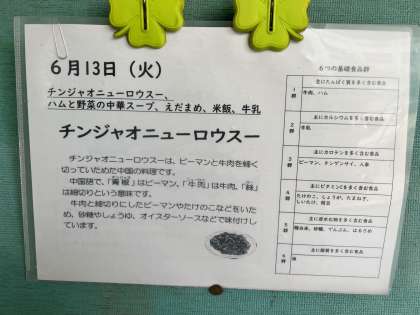 6月13日（火）
チンジャオニューロウスー、
ハムと野菜の中華スープ、えだまめ、米飯、牛乳
チンジャオニューロウスー
チンジャオニューロウスーは、ピーマンと牛肉を細く
切っていためた中国の料理です。
中国語で、「青椒」はピーマン、「牛肉」は牛肉、「絲」
は細切りという意味です。
牛肉と細切りにしたピーマンやたけのこなどをいた
め、砂糖やしょうゆ、オイスターソースなどで味付けし
ています。
6つの基礎食品群
1群
主にたんぱく質を多く含む食品
牛肉、ハム
2群
主にカルシウムを多く含む食品
牛乳
3群
主にカロテンを多く含む食品
ピーマン、チンゲンサイ、人参
4群
主にビタミンCを多く含む食品
たけのこ、しょうが、たまねぎ、
しいたけ、枝豆
5群
主に炭水化物を多く含む食品
精白米、砂糖、でんぷん、はるさめ
6群
主に脂質を多く含む食品
油